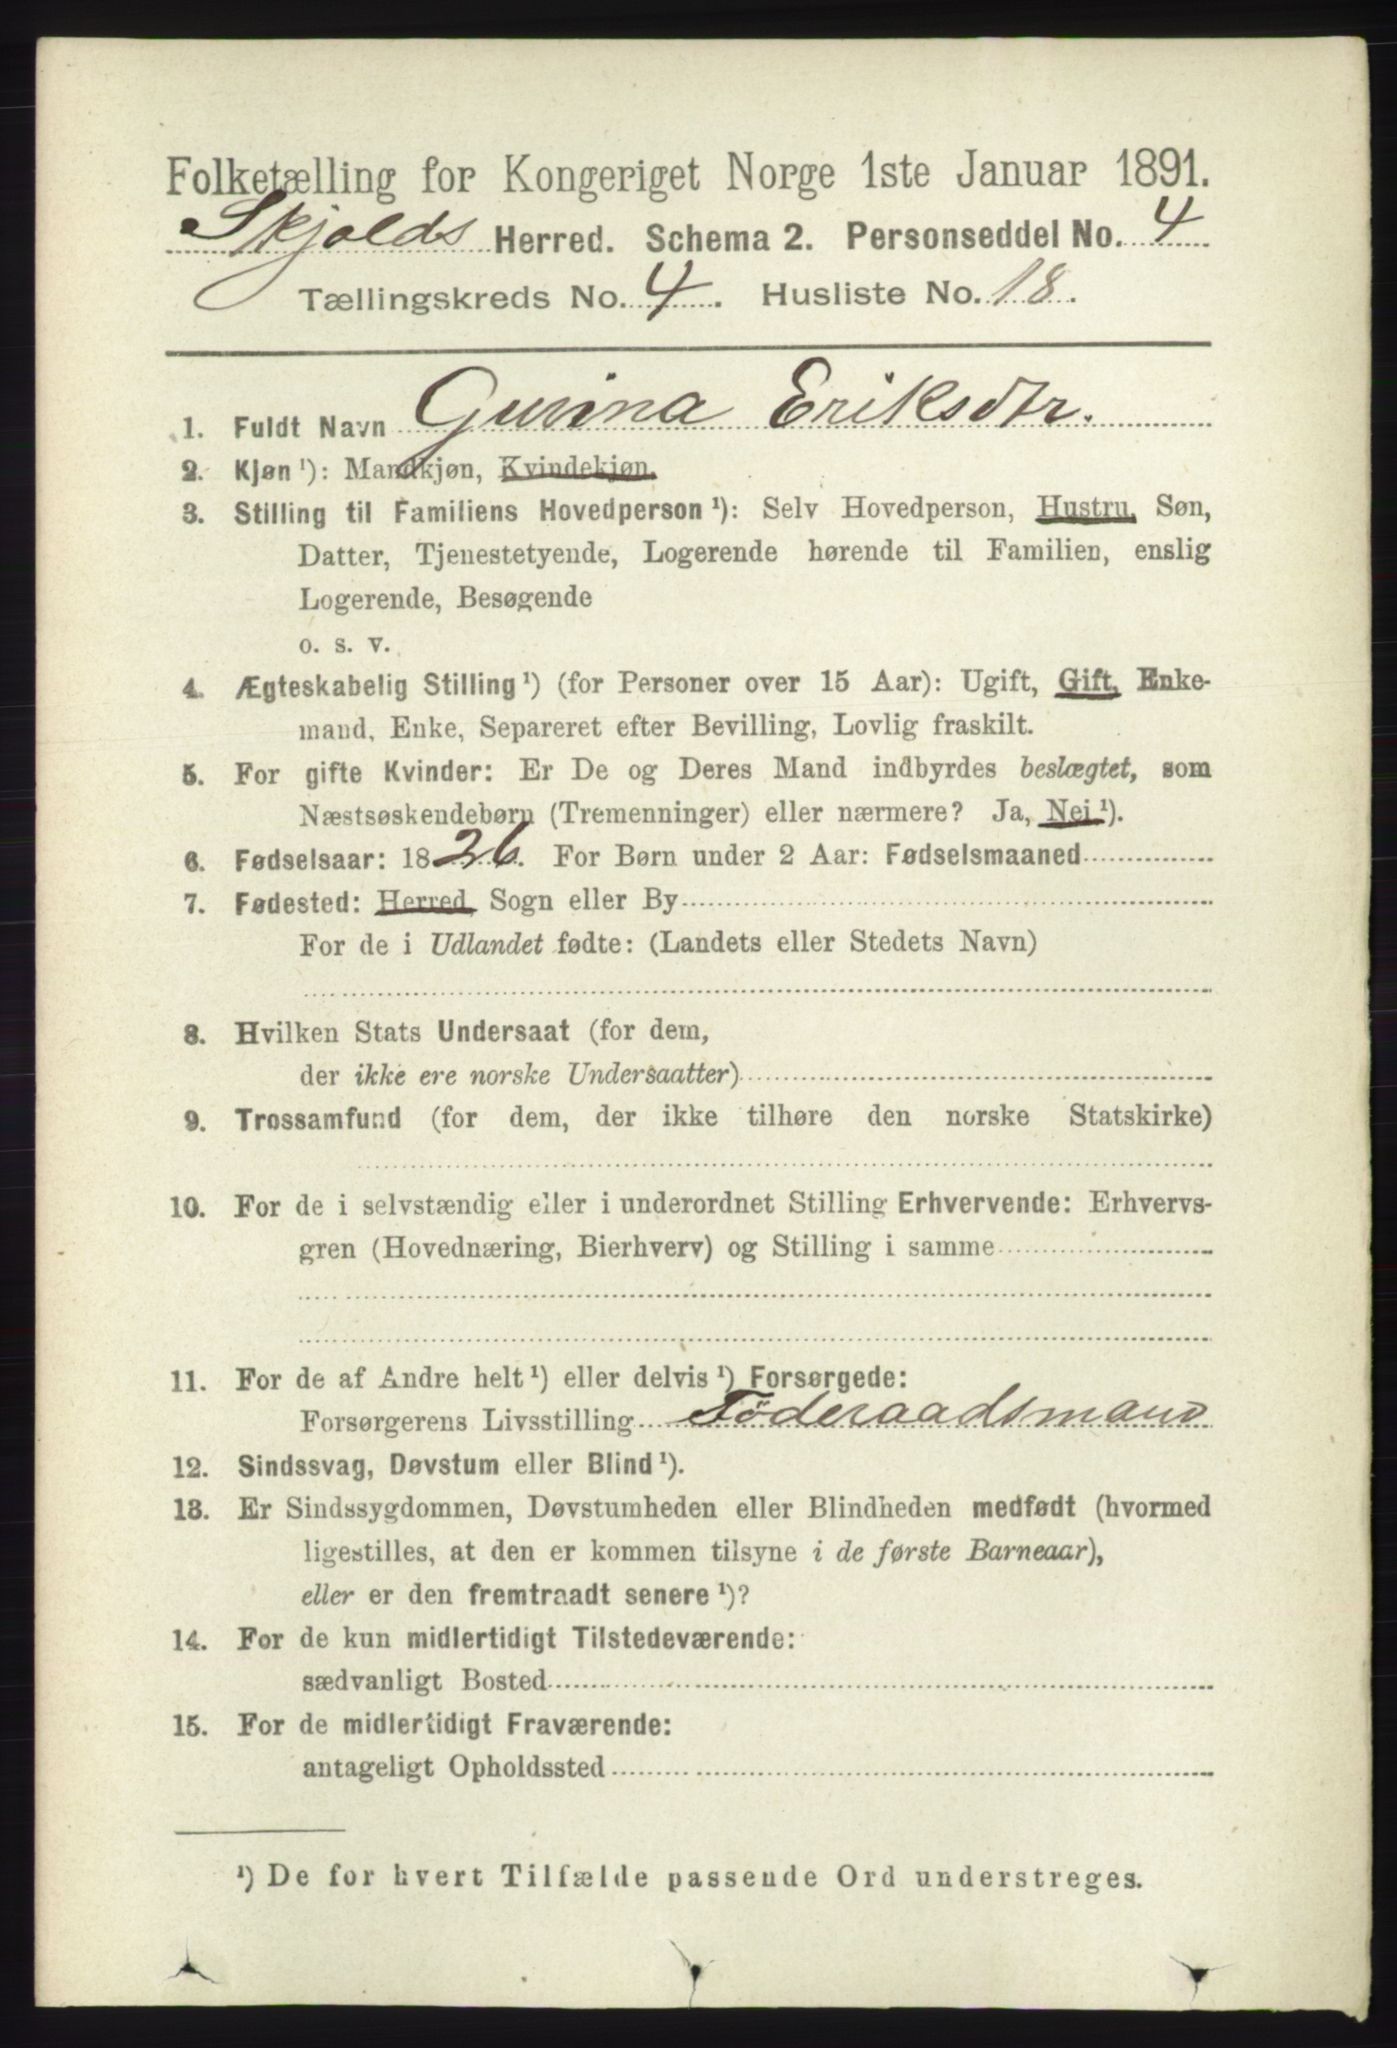 Folketælling for Kongeriget Norge 1ste Januar 1891.
Skjolds Herred. Schema 2. Personseddel No. 4
Tællingskreds No. 4. Husliste No. 18.
1. Fuldt Navn Gurina Eriksdtr.
2. Kjøn ¹): Mandkjøn, Kvindekjøn.
3. Stilling til Familiens Hovedperson ¹): Selv Hovedperson, Hustru, Søn,
Datter, Tjenestetyende, Logerende hørende til Familien, enslig
Logerende, Besøgende
o. s. v.
4. Ægteskabelig Stilling ¹) (for Personer over 15 Aar): Ugift, Gift, Enke-
mand, Enke, Separeret efter Bevilling, Lovlig fraskilt.
5. For gifte Kvinder: Er De og Deres Mand indbyrdes beslægtet, som
Næstsøskendebørn (Tremenninger) eller nærmere? Ja, Nei ¹).
6. Fødselsaar: 1826. For Børn under 2 Aar: Fødselsmaaned
7. Fødested: Herred, Sogn eller By
For de i Udlandet fødte: (Landets eller Stedets Navn)
8. Hvilken Stats Undersaat (for dem,
der ikke ere norske Undersaatter)
9. Trossamfund (for dem, der ikke tilhøre den norske Statskirke)
10. For de i selvstændig eller i underordnet Stilling Erhvervende: Erhvervs-
gren (Hovednæring, Bierhverv) og Stilling i samme
11. For de af Andre helt ¹) eller delvis ¹) Forsørgede:
Forsørgerens Livsstilling Föderaadsmand
12. Sindssvag, Døvstum eller Blind ¹).
13. Er Sindssygdommen, Døvstumheden eller Blindheden medfødt (hvormed
ligestilles, at den er kommen tilsyne i de første Barneaar),
eller er den fremtraadt senere ¹)?
14. For de kun midlertidigt Tilstedeværende:
sædvanligt Bosted
15. For de midlertidigt Fraværende:
antageligt Opholdssted
¹) De for hvert Tilfælde passende Ord understreges.